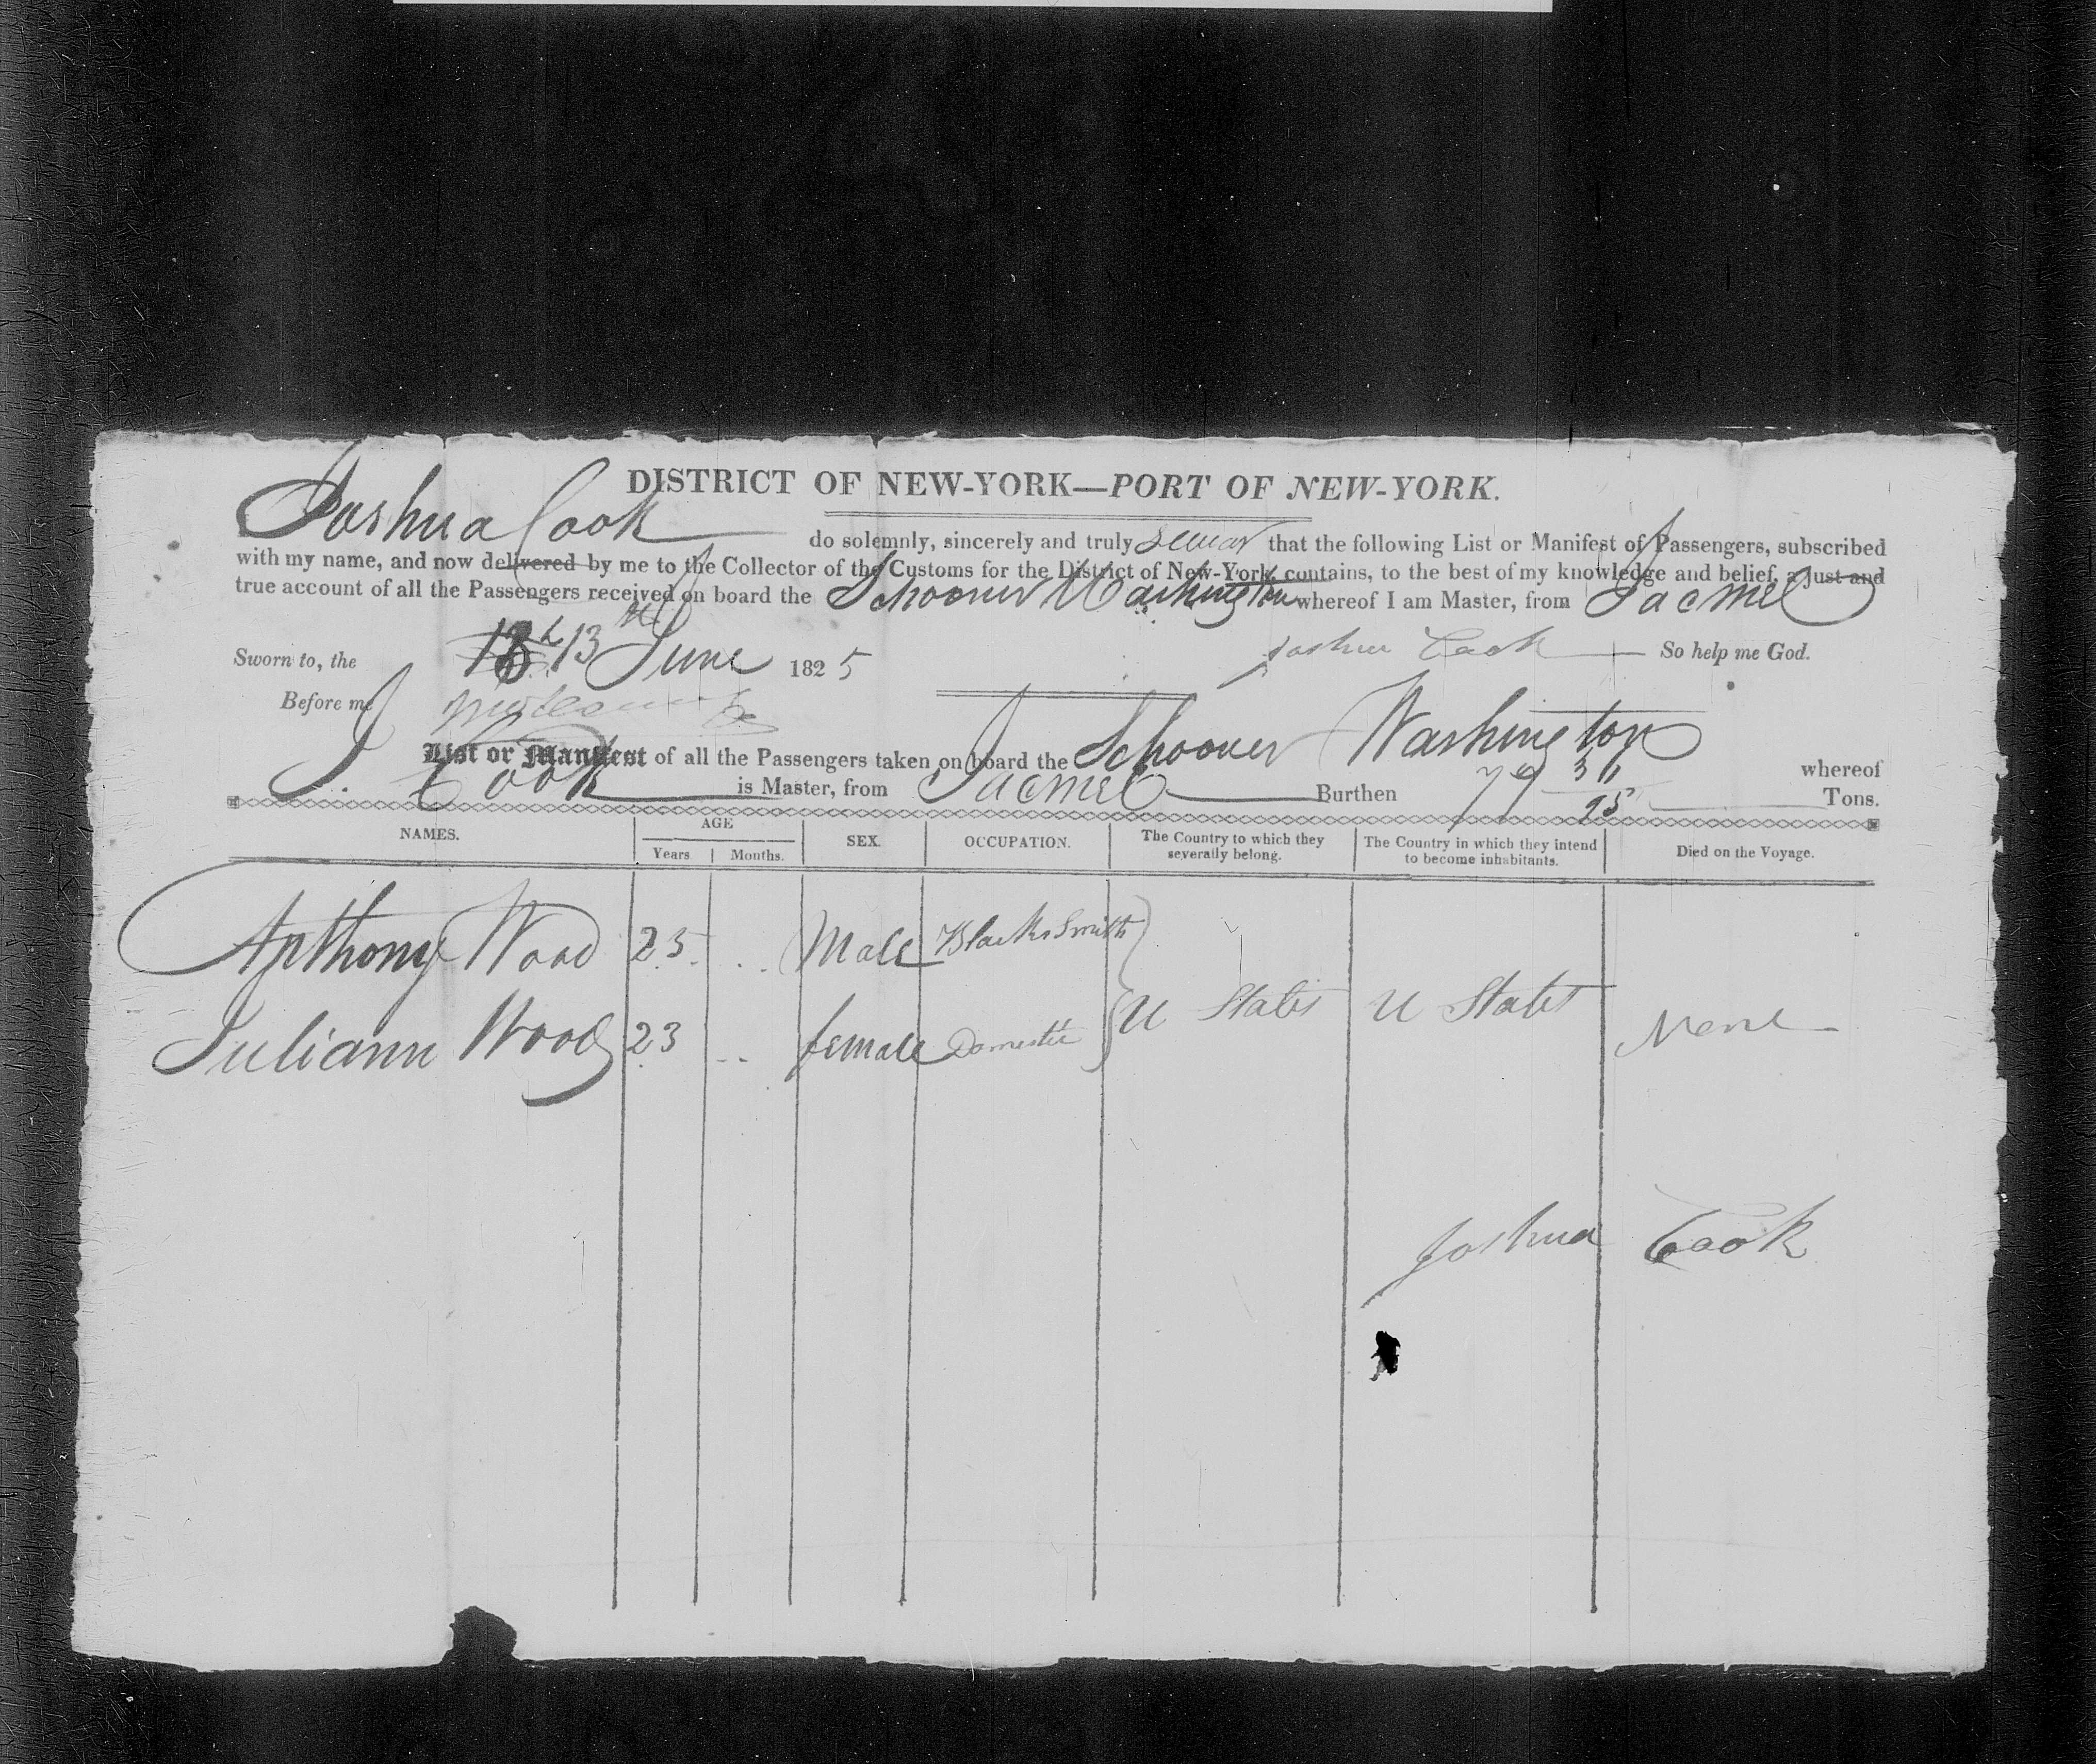 DISTRICT OF NEW-YORK—PORT OF NEW-YORK.
Joshua Cook do solemnly, sincerely and truly Swear that the following List or Manifest of Passengers, subscribed
with my name, and now delivered by me to the Collector of the Customs for the District of New-York, contains, to the best of my knowledge and belief, a just and
true account of all the Passengers received on board the Schooner Washington whereof I am Master, from Jacmel
Sworn to, the 13th June 1825 Joshua Cook So help me God.
Before me
List or Manifest of all the Passengers taken on board the Schooner Washington whereof
J. Cook is Master, from Jacmel Burthen 79 36/95 Tons.
NAMES. AGE Years Months. SEX. OCCUPATION. The Country to which they severally belong. The Country in which they intend to become inhabitants. Died on the Voyage.
Anthony Wood 25 .. Male BlackSmith
Juliann Wood 23 .. female Domestic U States U States None
Joshua Cook